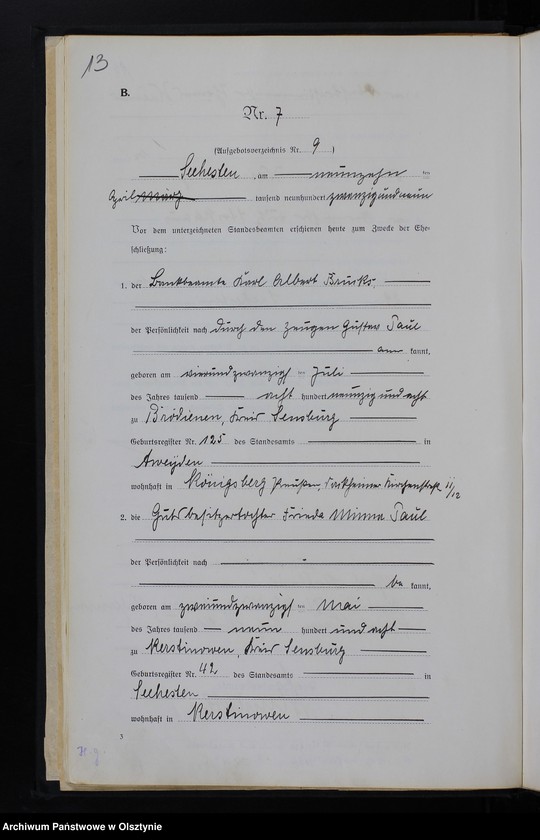 13
B.
Nr. 7
(Aufgebotsverzeichnis Nr. 9)
Seehesten, am neunzehn ten
April März tausend neunhundert zwanzigundneun
Vor dem unterzeichneten Standesbeamten erschienen heute zum Zwecke der Ehe-
schließung:
1. der Bankbeamte Karl Albert Brucks
der Persönlichkeit nach durch den Zeugen Gustav Paul
aner kannt,
geboren am vierundzwanzigst ten Juli
des Jahres tausend acht hundert neunzig und acht
zu Brödienen, Kreis Sensburg
Geburtsregister Nr. 125 des Standesamts in
Aweyden
wohnhaft in Königsberg Preußen, Kirchenstr. 11/12
2. die Gutsbesitzertochter Frieda Minna Paul
der Persönlichkeit nach
be kannt,
geboren am zweiundzwanzigst ten Mai
des Jahres tausend neun hundert und acht
zu Kerstinowen, Kreis Sensburg
Geburtsregister Nr. 42 des Standesamts in
Seehesten
wohnhaft in Kerstinowen
3
Archiwum Państwowe w Olsztynie